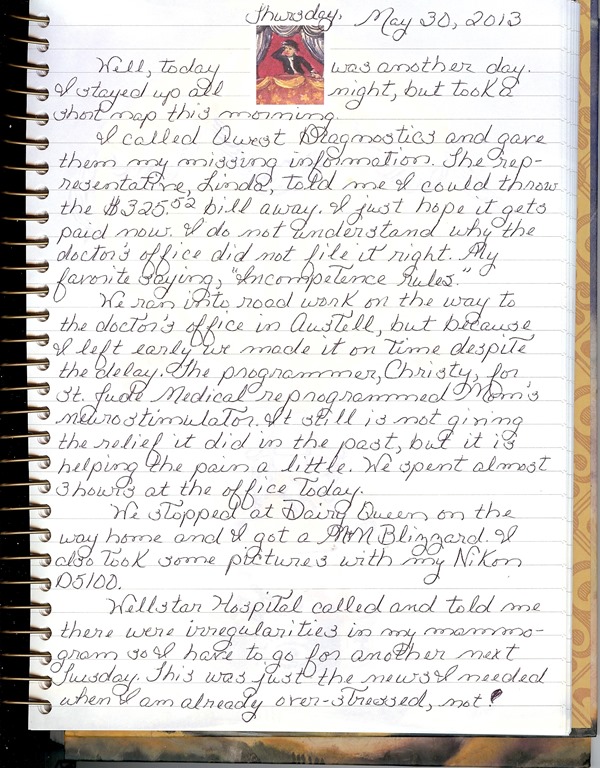 Thursday, May 30, 2013
Well, today was another day.
I stayed up all night, but took a
short nap this morning.
I called Qwest Diagnostics and gave
them my missing information. The rep-
resentative, Linda, told me I could throw
the $325.52 bill away. I just hope it gets
paid now. I do not understand why the
doctor's office did not file it right. My
favorite saying, "Incompetence Rules."
We ran into road work on the way to
the doctor's office in Austell, but because
I left early we made it on time despite
the delay. The programmer, Christy, for
St. Jude Medical reprogrammed Mom's
neurostimulator. It still is not giving
the relief it did in the past, but it is
helping the pain a little. We spent almost
3 hours at the office today.
We stopped at Dairy Queen on the
way home and I got a M&M Blizzard. I
also took some pictures with my Nikon
D5100.
Wellstar Hospital called and told me
there were irregularities in my mammo-
gram so I have to go for another next
Tuesday. This was just the news I needed
when I am already over-stressed, not!